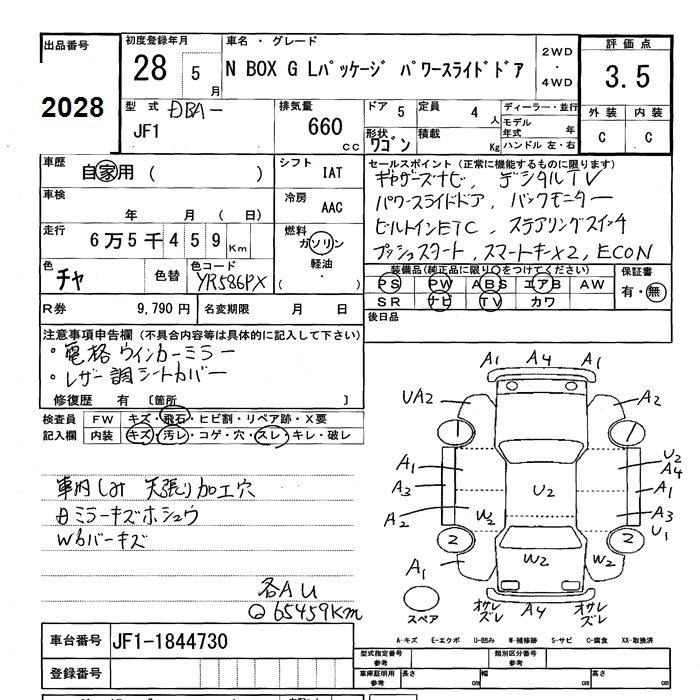 出品番号 初度登録年月 車名・グレード 2WD 評価点
2028 28 5 月 N BOX G Lパッケージ パワースライドドア ・ 3.5
4WD
型式 DBA- 排気量 ドア 5 定員 4 人 ディーラー・並行 外装 内装
JF1 660 cc 形状 ワゴン 積載 Kg モデル年式 年 C C
ハンドル 左・右
車歴 自家用 ( ) シフト IAT セールスポイント(正常に機能するものに限ります)
ギャザーズナビ、デジタルTV
車検 年 月 ( 日) 冷房 AAC パワースライドドア、バックモニター
走行 6万5千459Km 燃料 ガソリン ビルトインETC、ステアリングスイッチ
軽油 プッシュスタート、スマートキーx2, ECON
・
( )
色 チャ 色替 色コード YR586PX 装備品(純正品に限り○をつけてください) 保証書
PS PW ABS エアB AW 有・無
R券 9,790円 名変期限 月 日 SR ナビ TV カワ
後日品
注意事項申告欄(不具合内容等は具体的に記入して下さい)
・電格ウインカーミラー
・レザー調シートカバー
修復歴 有 〔箇所 〕
検査員 FW キズ・飛石・ヒビ割・リペア跡・X要
記入欄 内装 キズ・汚レ・コゲ・穴・スレ・キレ・破レ
A1 A4 A1
UA2 A2
A1 U2
A4
A3 A1
U2
A2 W2 A3
U1
2 2
W2 W2
A1
スペア オサレズレ A4 オサレズレ
車内しみ 天張り加工穴
ミラーキズホシュウ
W6バーキズ
各AU
65459Km
A-キズ E-エクボ U-凹み W-補修跡 S-サビ C-腐食 XX-取換済
車台番号 JF1-1844730 型式指定番号 参考 類別区分番号 参考
登録番号 車庫証明用 参考 長さ cm 幅 cm 高さ cm